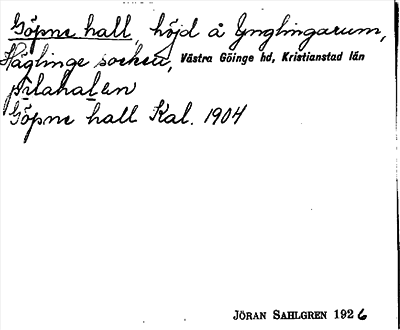 Göpne hall, höjd å Ynglingarum,
Häglinge socken, Västra Göinge hd, Kristianstad län
Göpne hall Kal. 1904
JÖRAN SAHLGREN 1926